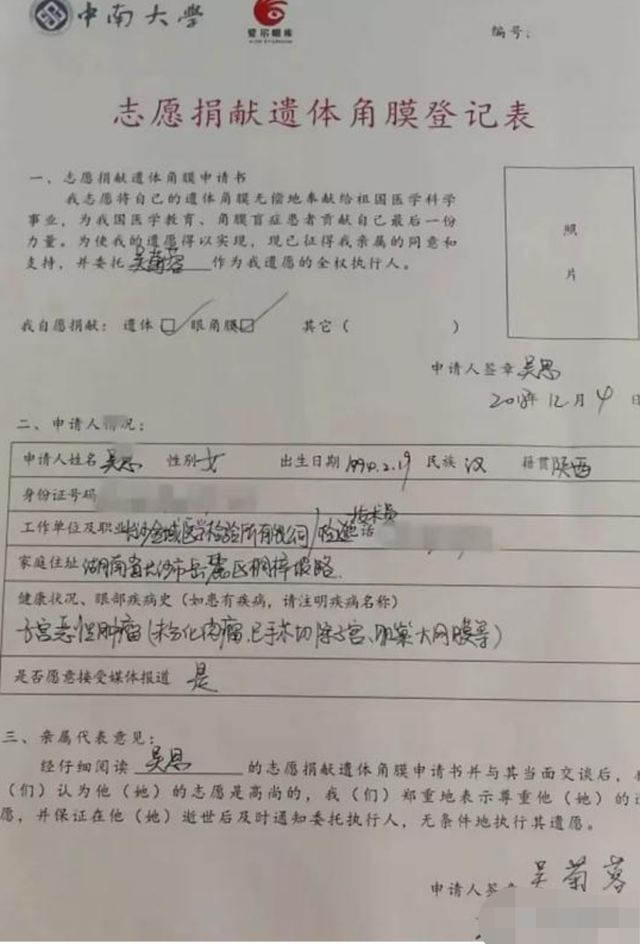 中南大学
爱尔眼库
编号：
志愿捐献遗体角膜登记表
一、志愿捐献遗体角膜申请书
我志愿将自己的遗体角膜无偿地奉献给祖国医学科学
事业，为我国医学教育、角膜盲症患者贡献自己最后一份
力量。为使我的遗愿得以实现，现已征得我亲属的同意和
支持，并委托吴菊蓉作为我遗愿的全权执行人。
照
片
我自愿捐献：遗体☑ 眼角膜☑ 其它（ ）
申请人签章 吴思
2018年12月4日
二、申请人情况：
申请人姓名 吴思 性别 女 出生日期 1994.2.19 民族 汉 籍贯 陕西
身份证号码
工作单位及职业 长沙金域医学检验所有限公司/检验技术员
话
家庭住址 湖南省长沙市岳麓区桐梓坡路
健康状况、眼部疾病史（如患有疾病，请注明疾病名称）
子宫恶性肿瘤（未分化肉瘤，已手术切除子宫、卵巢大网膜等）
是否愿意接受媒体报道 是
三、亲属代表意见：
经仔细阅读 吴思 的志愿捐献遗体角膜申请书并与其当面交谈后，
（们）认为他（她）的志愿是高尚的，我（们）郑重地表示尊重他（她）的
愿，并保证在他（她）逝世后及时通知委托执行人，无条件地执行其遗愿。
申请人签章 吴菊蓉